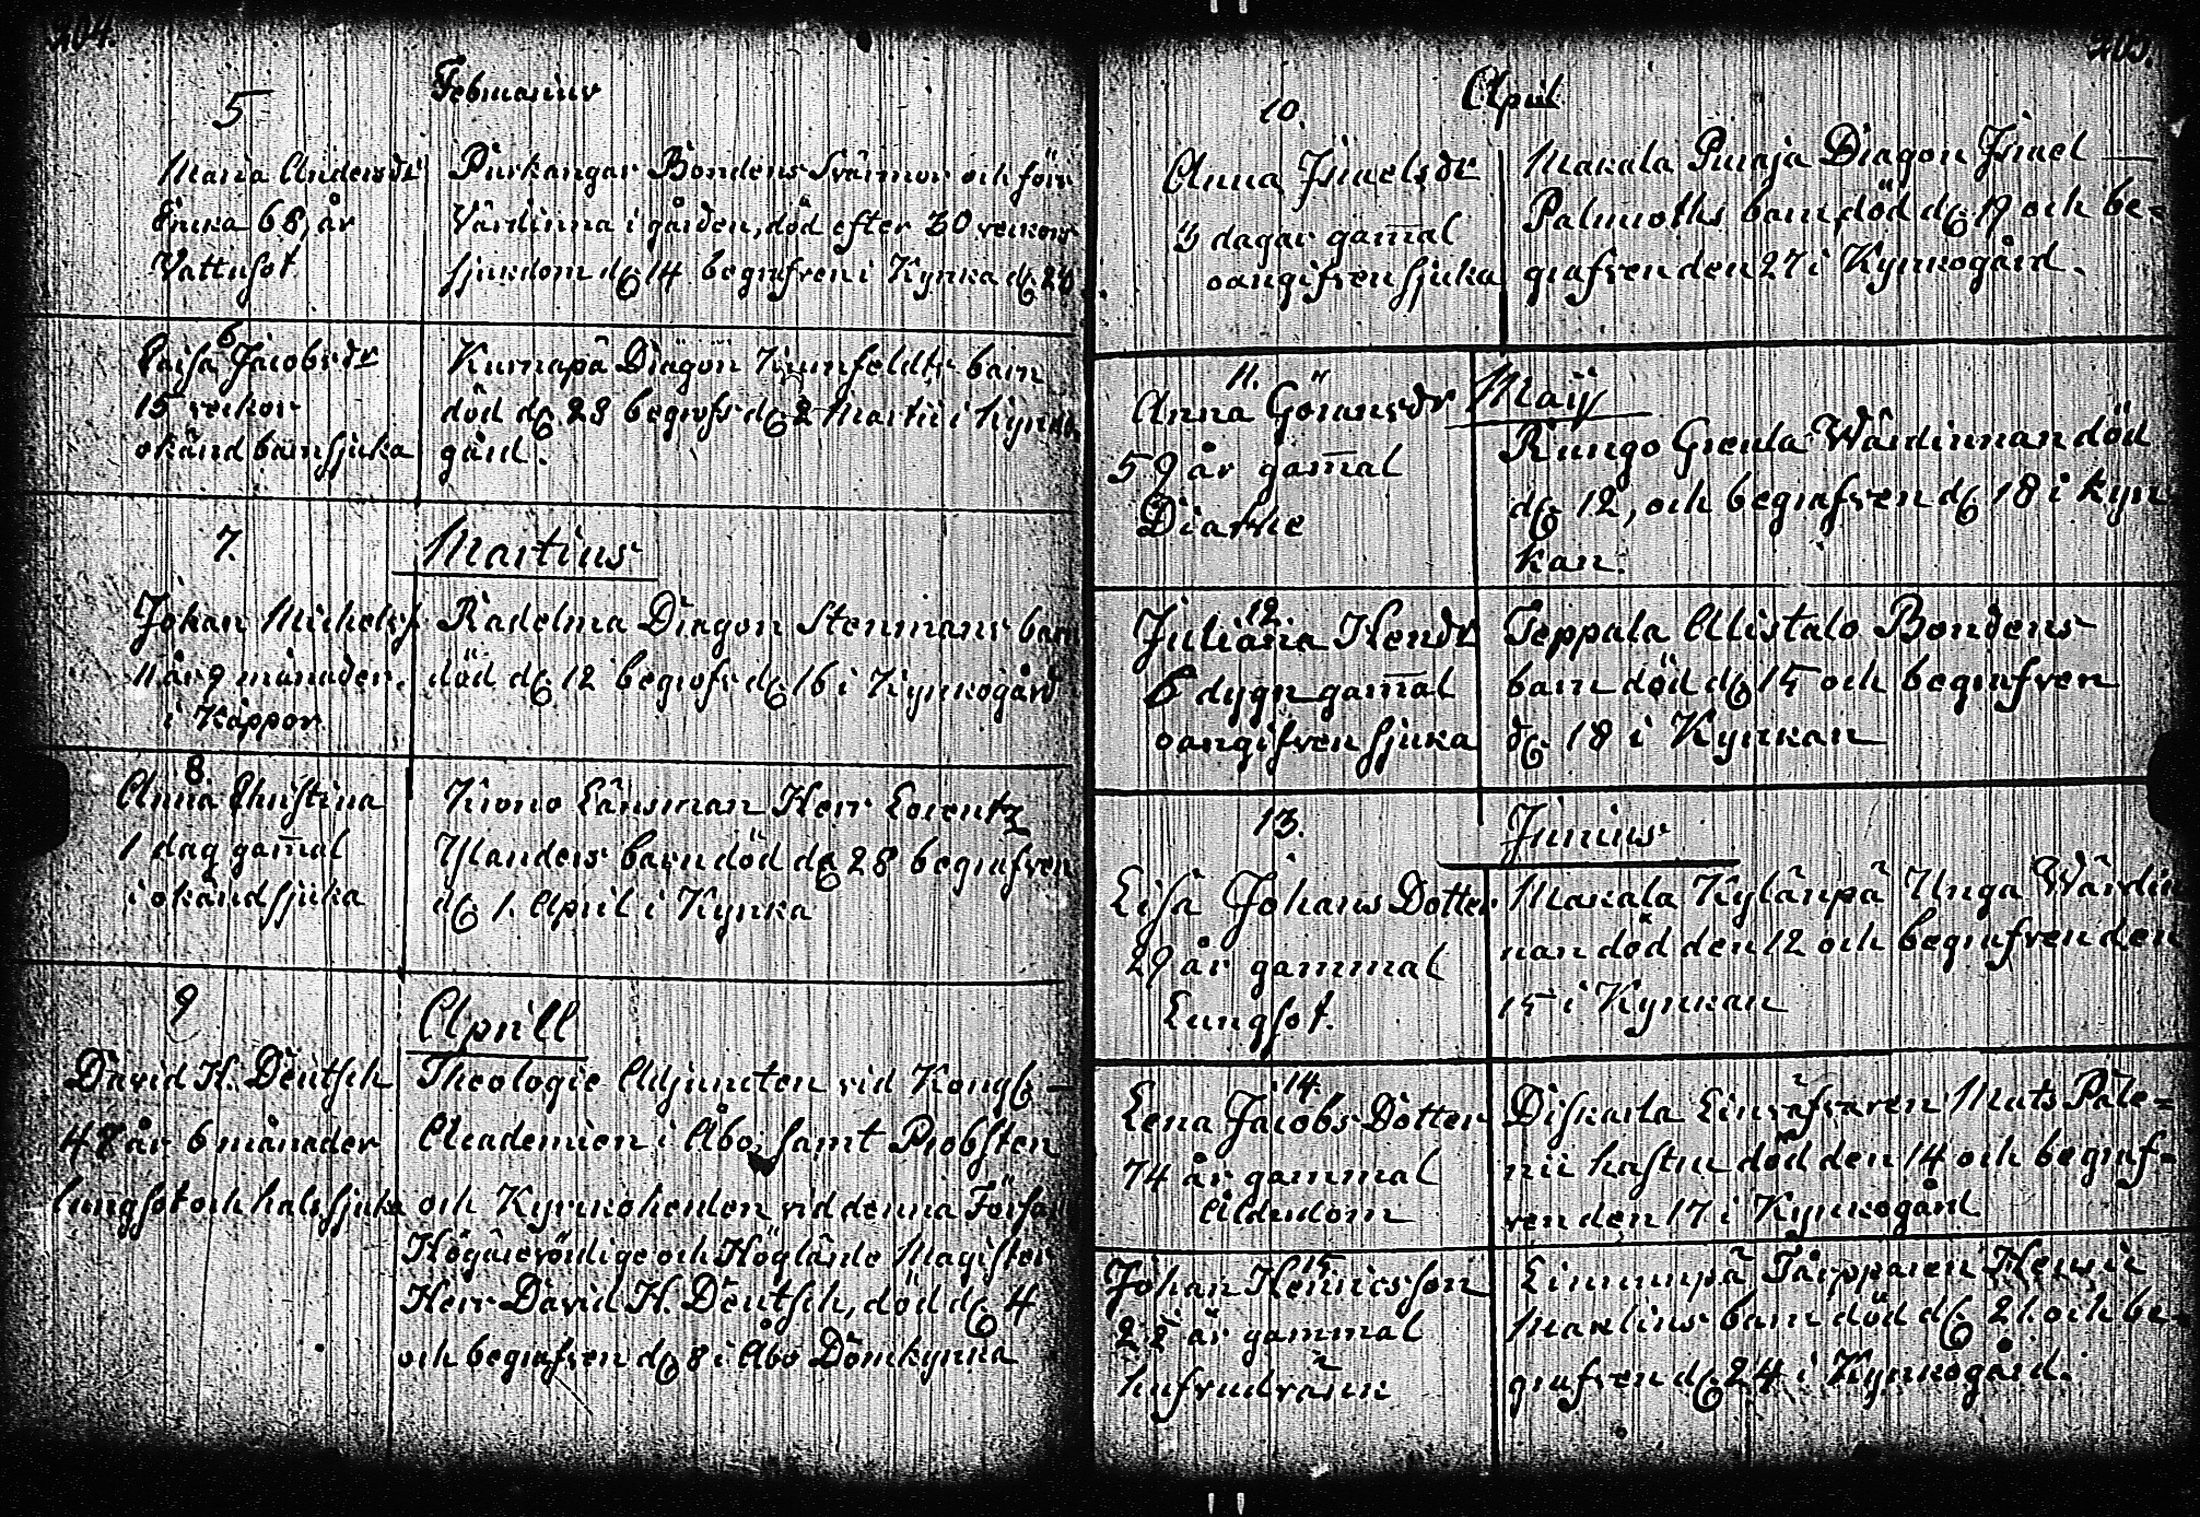 204.
Februarius
5
Maria Andersdr
Enka 68 år
Vattusot
Purkangar Bondens Svärmor och förr
Värdinna i gården, död efter 30 veckors
sjukdom d. 14 begrafven i Kyrka d.
6
Caisa Jacobsdr
15 veckor
okänd barnsjuka
Kurnapä Dragon barn
död d. 23 begrofs d. 2 Martii i Kyrko
gård.
7.
Martius
Johan Michelss
11 år 9 månader.
i Kåppor
Radelma Dragon Stenmans barn
död d. 12 begrofs d. 16 i Kyrkogård
8.
Anna Christina
1 dag gamal
i okänd sjuka
Krono Länsman Herr Lorentz
Ylanders barn död d. 28 begrafven
d. 1. April i Kyrka
9
Aprill
David H. Deutsch
48 år 6 månader
lungsot och halssjuka
Theologie Adjuncten vid Kongl.
Academien i Åbo, samt Probsten
och Kyrkoherden vid denna Försa
Högärevördige och Höglärde Magister
Herr David H. Deutsch, död d. 4
och begrafven d. 8 i Åbo Domkyrka
205.
April
10.
Anna Israelsdr
3 dagar gamal
oangifven sjuka
Makala Puraja Dragon Israel
Palmroths barn, död d. 19 och be=
grafven den 27 i Kyrkogård.
11.
Anna Göransdr
59 år gamal
Diarrhe
Maij
Rungo Greula Wärdinnan död
d. 12, och begrafven d. 18 i Kyr
kan.
12.
Juliana Hendr
6 dygn gamal
oangifven sjuka
Teppala Alistalo Bondens
barn död d. 15 och begrafven
d. 18 i Kyrkan
13.
Junius
Lisa Johans Dotter
29 år gammal
Lungsot.
Makala Kylänpä Unga Wärdin
nan död den 12 och begrafven den
15 i Kyrkan
14.
Lena Jacobs Dotter
74 år gammal
Ålderdom
Diskarla Mats Pale=
nii hustru död den 14 och begraf=
ven den 17 i Kyrkogård
15.
Johan Henricsson
2 år gammal
hufvudvärk
Linnunpä Tårpparen Henric
barn död d. 21 och be=
grafven d. 24 i Kyrkogård.